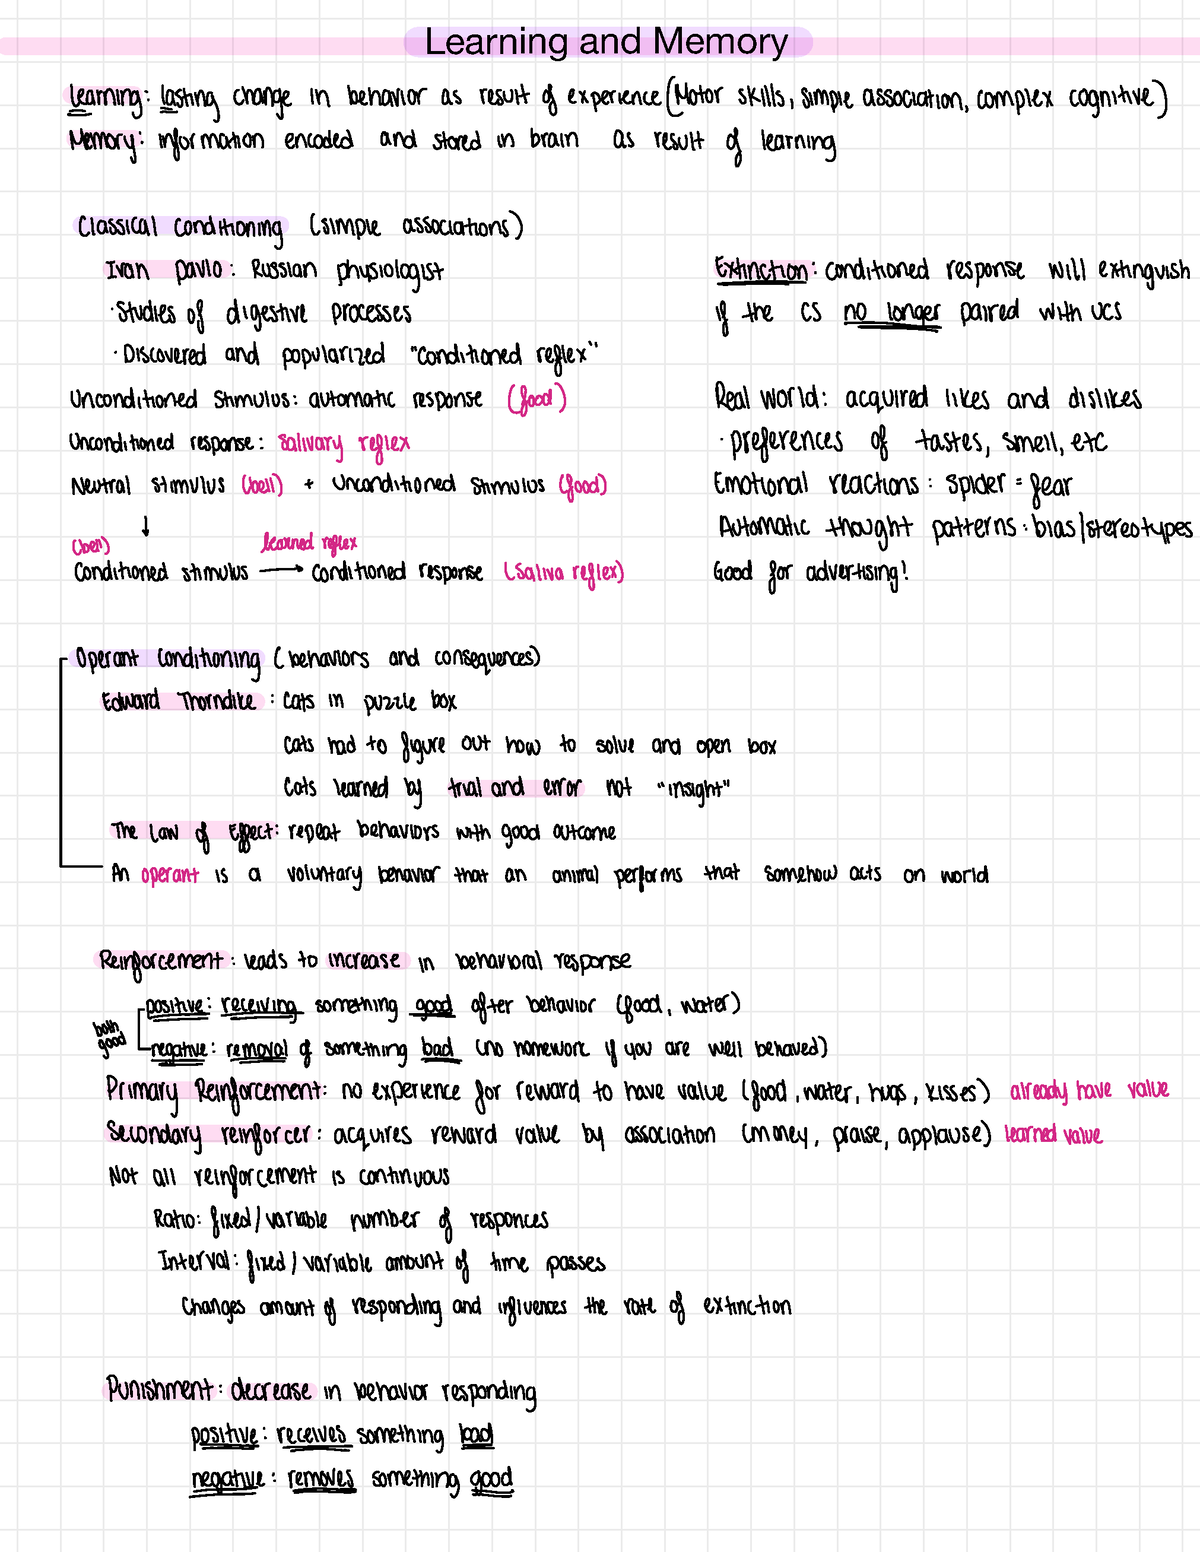 Learning and Memory
learning: lasting change in behavior as result of experience (Motor skills, simple association, complex cognitive)
Memory: information encoded and stored in brain as result of learning
Classical Conditioning (simple associations)
Ivan Pavlo: Russian physiologist
· Studies of digestive processes
· Discovered and popularized "conditioned reflex"
Unconditioned Stimulus: automatic response (food)
Unconditioned response: Salivary reflex
Neutral stimulus (bell) + Unconditioned Stimulus (food)
↓
(bell) learned reflex
Conditioned stimulus → conditioned response (Saliva reflex)
Extinction: conditioned response will extinguish
if the CS no longer paired with UCS
Real world: acquired likes and dislikes
· preferences of tastes, smell, etc
Emotional reactions: spider = fear
Automatic thought patterns: bias/stereotypes
Good for advertising!
Operant Conditioning (behaviors and consequences)
Edward Thorndike: Cats in puzzle box
Cats had to figure out how to solve and open box
Cats learned by trial and error not "insight"
The Law of Effect: repeat behaviors with good outcome
An operant is a voluntary behavior that an animal performs that somehow acts on world
Reinforcement: leads to increase in behavioral response
both good
positive: receiving something good after behavior (food, water)
negative: removal of something bad (no homework if you are well behaved)
Primary Reinforcement: no experience for reward to have value (food, water, hugs, kisses) already have value
Secondary reinforcer: acquires reward value by association (money, praise, applause) learned value
Not all reinforcement is continuous
Ratio: fixed/variable number of responces
Interval: fixed/variable amount of time passes
Changes amount of responding and influences the rate of extinction
Punishment: decrease in behavior responding
positive: receives something bad
negative: removes something good